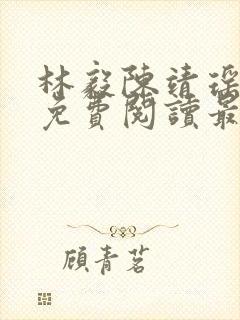 林毅陳靖瑶
免費閱讀最
顧青茗